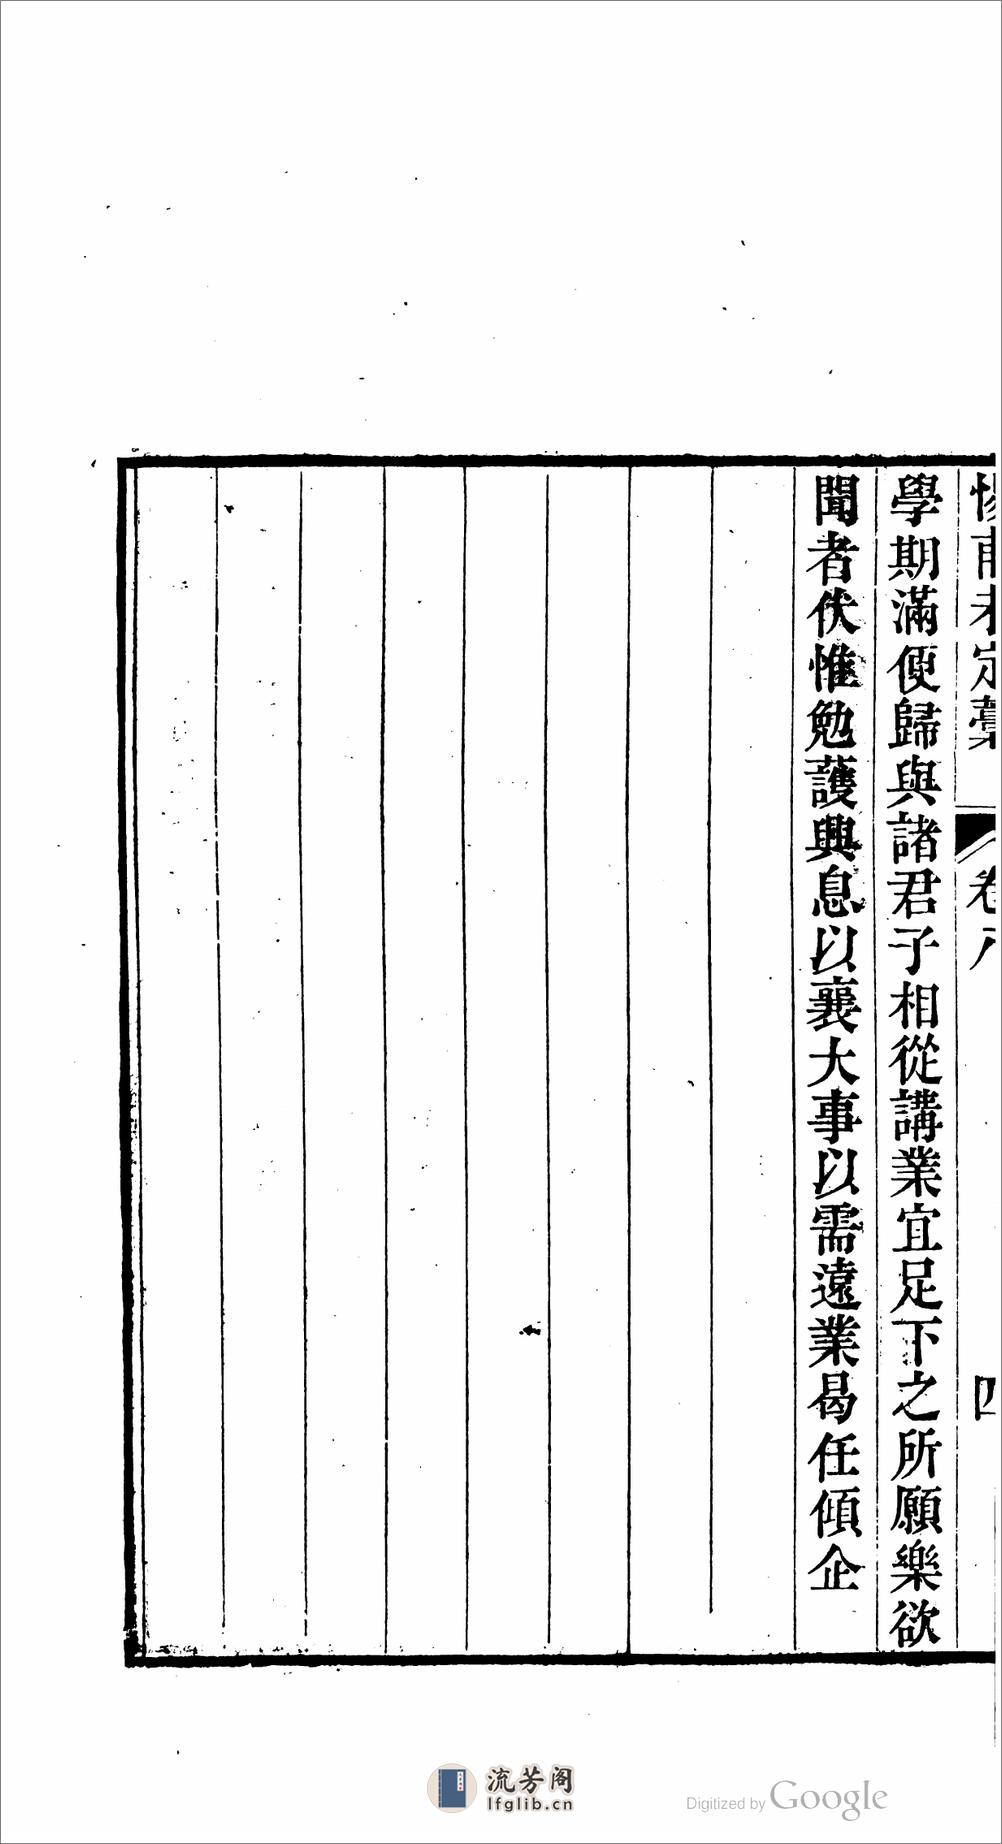 惕甫未定藁 卷八 四
學期滿便歸與諸君子相從講業宜足下之所願樂欲
聞者伏惟勉護興息以襄大事以需遠業曷任傾企
流芳阁
lfglib.cn
Digitized by Google